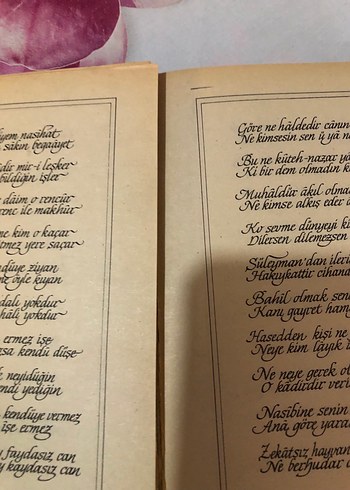 iyem nasihat
sâkın begaâyet
dir mir-i leşker
bildiğin işler
e dâim o rencûr
renc ile makhûr
ne kim o kaçar
tmez yere saçar
ndüye ziyan
öyle kıyan
dalı yokdur
hâlı yokdur
ermez işe
rsa kendü düşe
neyidüğin
endi yediğin
kendüye vermez
işe ermez
faydasız can
kaydasız can
Göre ne hâldedir cânın
Ne kimsesin sen ü yâ n
Bu ne kûteh-nazar yâ
Ki bir dem olmadın k
Muhâldir âkıl olma
Ne kimse alkış eder
Ko sevme dünyeyi k
Dilersen dilemezsen
Süleyman'dan ileri
Hakıykattir cihan
Bahil olmak sen
Kanı gayret ham
Hasedden kişi ne
Neye kim lâyık i
Ne neye gerek ol
O kâdirdir veri
Nasîbine senin
Anâ göre yara
Zekâtsız hayvan
Ne berhudar